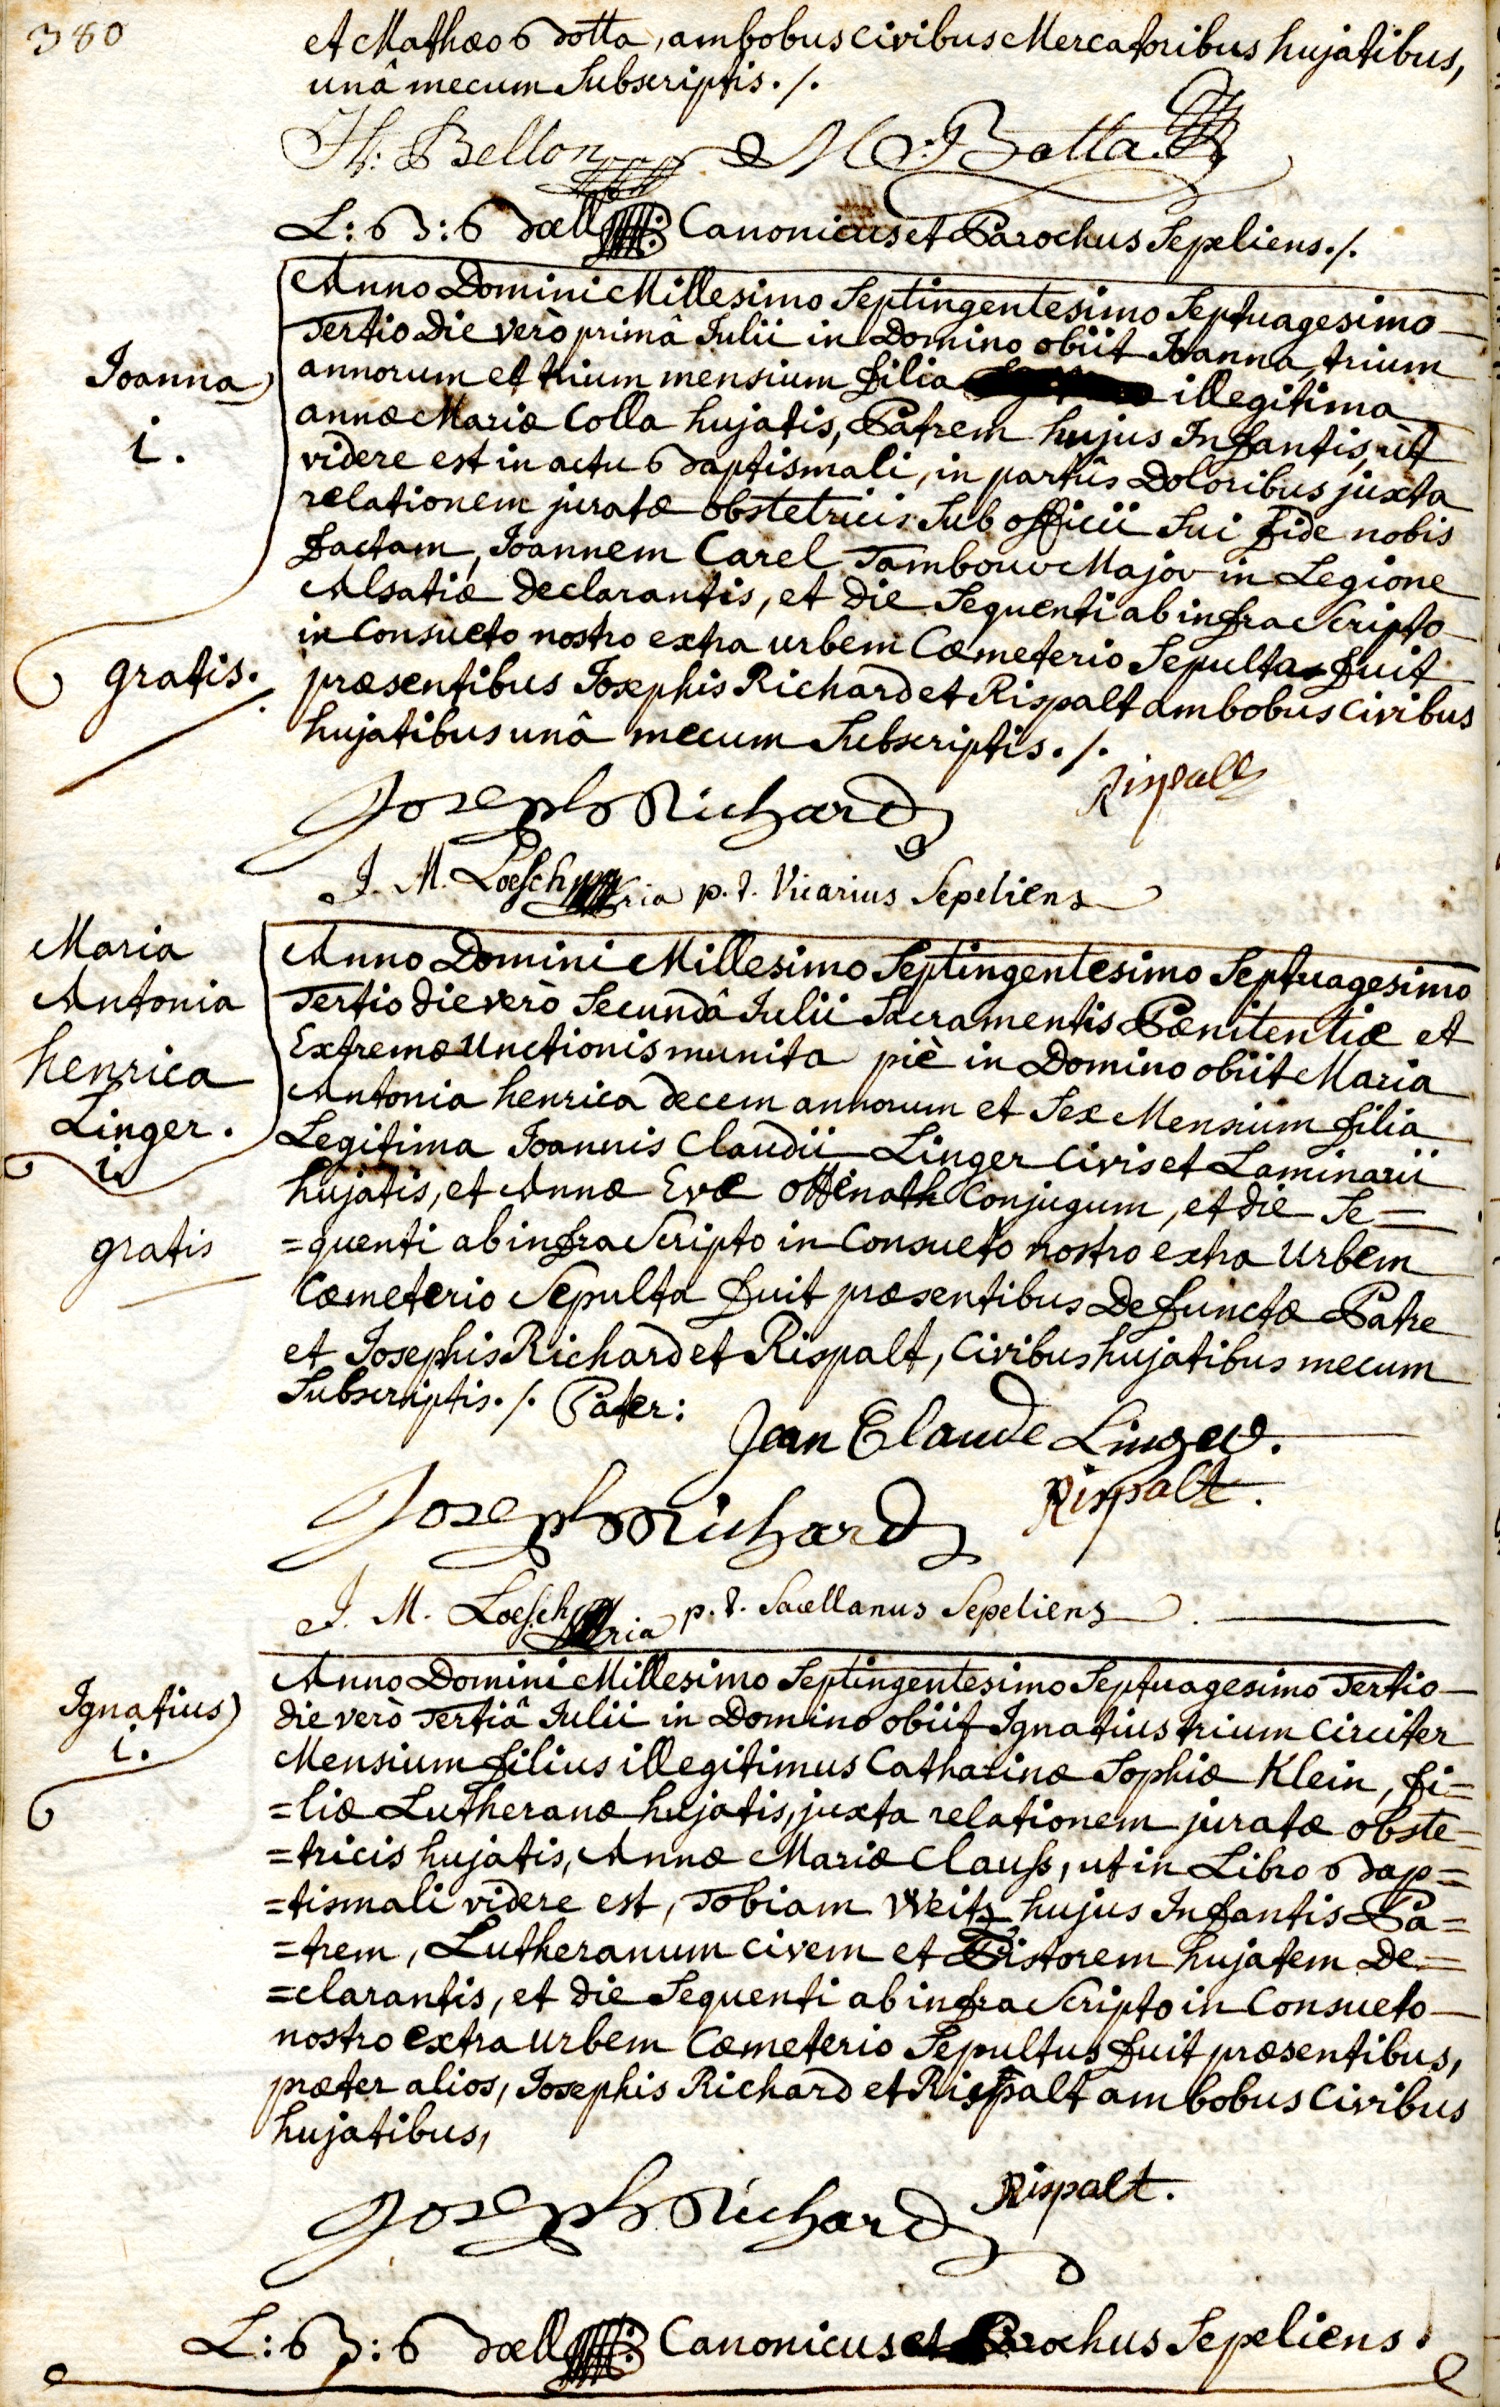 380
et Mathæo Botta, ambobus civibus Mercatoribus hujatibus,
unâ mecum Subscriptis./.
H: Bellon M: Botta.
L: B: Bæll Canonicus et Parochus Sepeliens./.
Joanna
i.
gratis.
Anno Domini Millesimo Septingentesimo Septuagesimo
Tertio die verò primâ Julii in Domino obiit Joanna, trium
annorum et trium mensium filia illegitima
annæ Mariæ Colla hujatis, Patrem hujus Infantis, ut
videre est in actu Baptismali, in partûs Doloribus juxta
relationem juratæ obstetricis Sub officii Sui fide nobis
factam, Joannem Carel Tambour Major in Legione
Alsatiæ declarantis, et die Sequenti ab infra Scripto
in Consueto nostro extra urbem Cæmeterio Sepulta fuit
præsentibus Josephis Richard et Rispalt ambobus civibus
hujatibus unâ mecum Subscriptis./.
Joseph Richard
Rispalt
J. M. Loesch p. t. Vicarius Sepeliens
Maria
Antonia
henrica
Linger.
i.
gratis
Anno Domini Millesimo Septingentesimo Septuagesimo
Tertio die verò Secundâ Julii Sacramentis Pænitentiæ et
Extremæ Unctionis munita piè in Domino obiit Maria
Antonia henrica decem annorum et Sex Mensium filia
Legitima Joannis Claudii Linger Civis et Laminarii
hujatis, et Annæ Evæ Ottenath Conjugum, et die Se=
=quenti ab infra Scripto in Consueto nostro extra Urbem
Cæmeterio Sepulta fuit præsentibus Defunctæ Patre
et Josephis Richard et Rispalt, Civibus hujatibus mecum
Subscriptis./. Pater:
Jean Claude Linger.
Rispalt.
Joseph Richard
J. M. Loesch p. t. Sacellanus Sepeliens
Ignatius
i.
Anno Domini Millesimo Septingentesimo Septuagesimo Tertio
die verò Tertiâ Julii in Domino obiit Ignatius trium circiter
Mensium filius illegitimus Catharinæ Sophiæ Klein, fi=
=liæ Lutheranæ hujatis, juxta relationem juratæ obste=
=tricis hujatis, Annæ Mariæ Clauss, ut in Libro Bap=
=tismali videre est, Tobiam Weitz hujus Infantis Pa=
=trem, Lutheranum civem et Pistorem hujatem De=
=clarantis, et die Sequenti ab infra Scripto in Consueto
nostro extra urbem Cæmeterio Sepultus fuit præsentibus,
præter alios, Josephis Richard et Rispalt ambobus Civibus
hujatibus,
Rispalt.
Joseph Richard
L: B: Bæll Canonicus et Parochus Sepeliens.